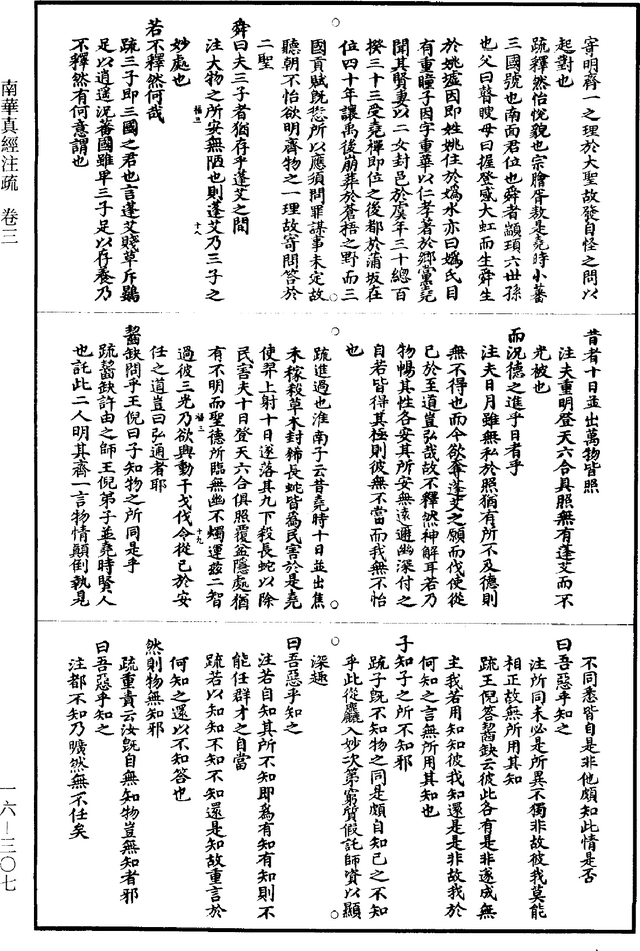 寄明齊一之理於大聖故發自怪之問以
起對也
疏釋然怡悅貌也宗膾胥敖是堯時小蕃
三國號也南面君位也舜者顓頊六世孫
也父曰瞽瞍母曰握登感大虹而生舜生
於姚墟因即姓姚住於嬀水亦曰嬀氏目
有重瞳子因字重華以仁孝著於鄉黨堯
聞其賢妻以二女封邑於虞年三十總百
揆三十三受堯禪即位之後都於蒲坂在
位四十年讓禹後崩葬於蒼梧之野而三
國貢賦既愆所以應須問罪謀事未定故
聽朝不怡欲明齊物之一理故寄問答於
二聖
舜曰夫三子者猶存乎蓬艾之間
注夫物之所安無陋也則蓬艾乃三子之
妙處也
若不釋然何哉
疏三子即三國之君也言蓬艾賤草斥鷃
足以逍遥況蕃國雖卑三子足以存養乃
不釋然有何意謂也
昔者十日並出萬物皆照
注夫重明登天六合具照無有蓬艾而不
光被也
而況德之進乎日者乎
注夫日月雖無私於照猶有所不及德則
無不得也而今欲奪蓬艾之願而伐使從
已於至道豈弘哉故不釋然神解耳若乃
物暢其性各安其所安無遠邇幽深付之
自若皆得其極則彼無不當而我無不怡
也
疏進過也淮南子云昔堯時十日並出焦
禾稼殺草木封豨長蛇皆爲民害於是堯
使羿上射十日遂落其九下殺長蛇以除
民害夫十日登天六合俱照覆盆隱處猶
有不明而聖德所臨無幽不燭運兹二智
過彼三光乃欲興動干戈伐令從已於安
任之道豈曰弘通者耶
齧缺問乎王倪曰子知物之所同是乎
疏齧缺許由之師王倪弟子並堯時賢人
也託此二人明其齊一言物情顛倒執見
不同悉皆自是非他頗知此情是否
曰吾惡乎知之
注所同未必是所異不獨非故彼我莫能
相正故無所用其知
疏王倪答齧缺云彼此各有是非遂成無
主我若用知知彼我知還是是非故我於
何知之言無所用其知也
子知子之所不知邪
疏子既不知物之同是頗自知己之不知
乎此從麤入妙次第窮質假託師資以顯
深趣
曰吾惡乎知之
注若自知其所不知即爲有知有知則不
能任群才之自當
疏若以知知不知不知還是知故重言於
何知之還以不知答也
然則物無知邪
疏重責云汝既自無知物豈無知者邪
曰吾惡乎知之
注都不知乃曠然無不任矣
南華真經注疏 卷三
一六—三〇七